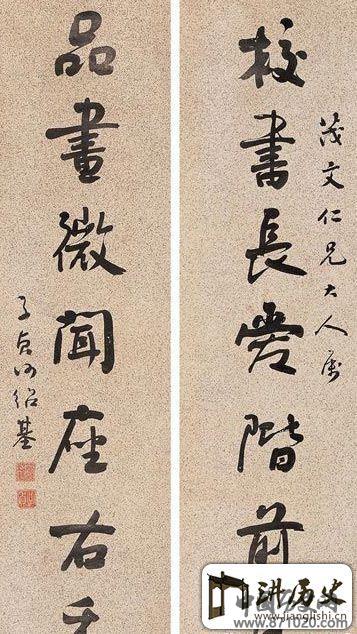 茂文仁兄大人屬
校書長愛階前
品畫微聞座右
子貞何紹基
讲历史
www.jianglishi.cn
www.871020.com